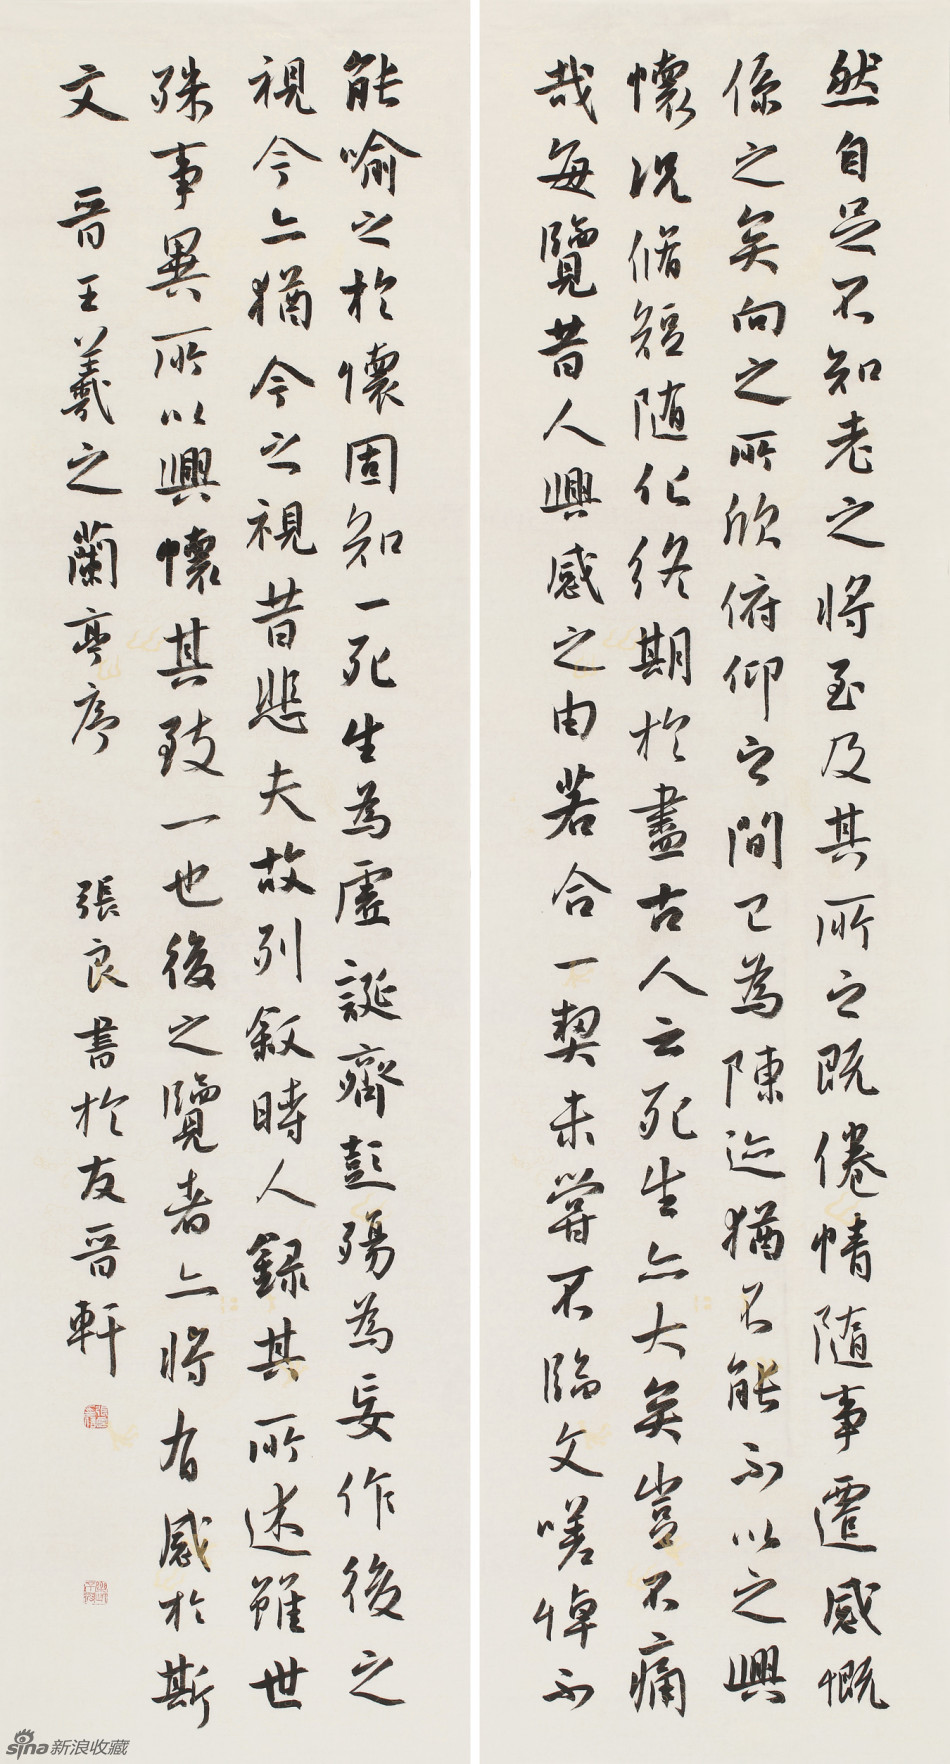 然自足不知老之將至及其所之既倦情隨事遷感慨
係之矣向之所欣俯仰之間已為陳迹猶不能不以之興
懷況脩短随化終期於盡古人云死生亦大矣豈不痛
哉每覽昔人興感之由若合一契未嘗不臨文嗟悼不
能喻之於懷固知一死生為虛誕齊彭殤為妄作後之
視今亦猶今之視昔悲夫故列敘時人錄其所述雖世
殊事異所以興懷其致一也後之覽者亦將有感於斯
文 晉王羲之蘭亭序 張良書於友晉軒
sina新浪收藏